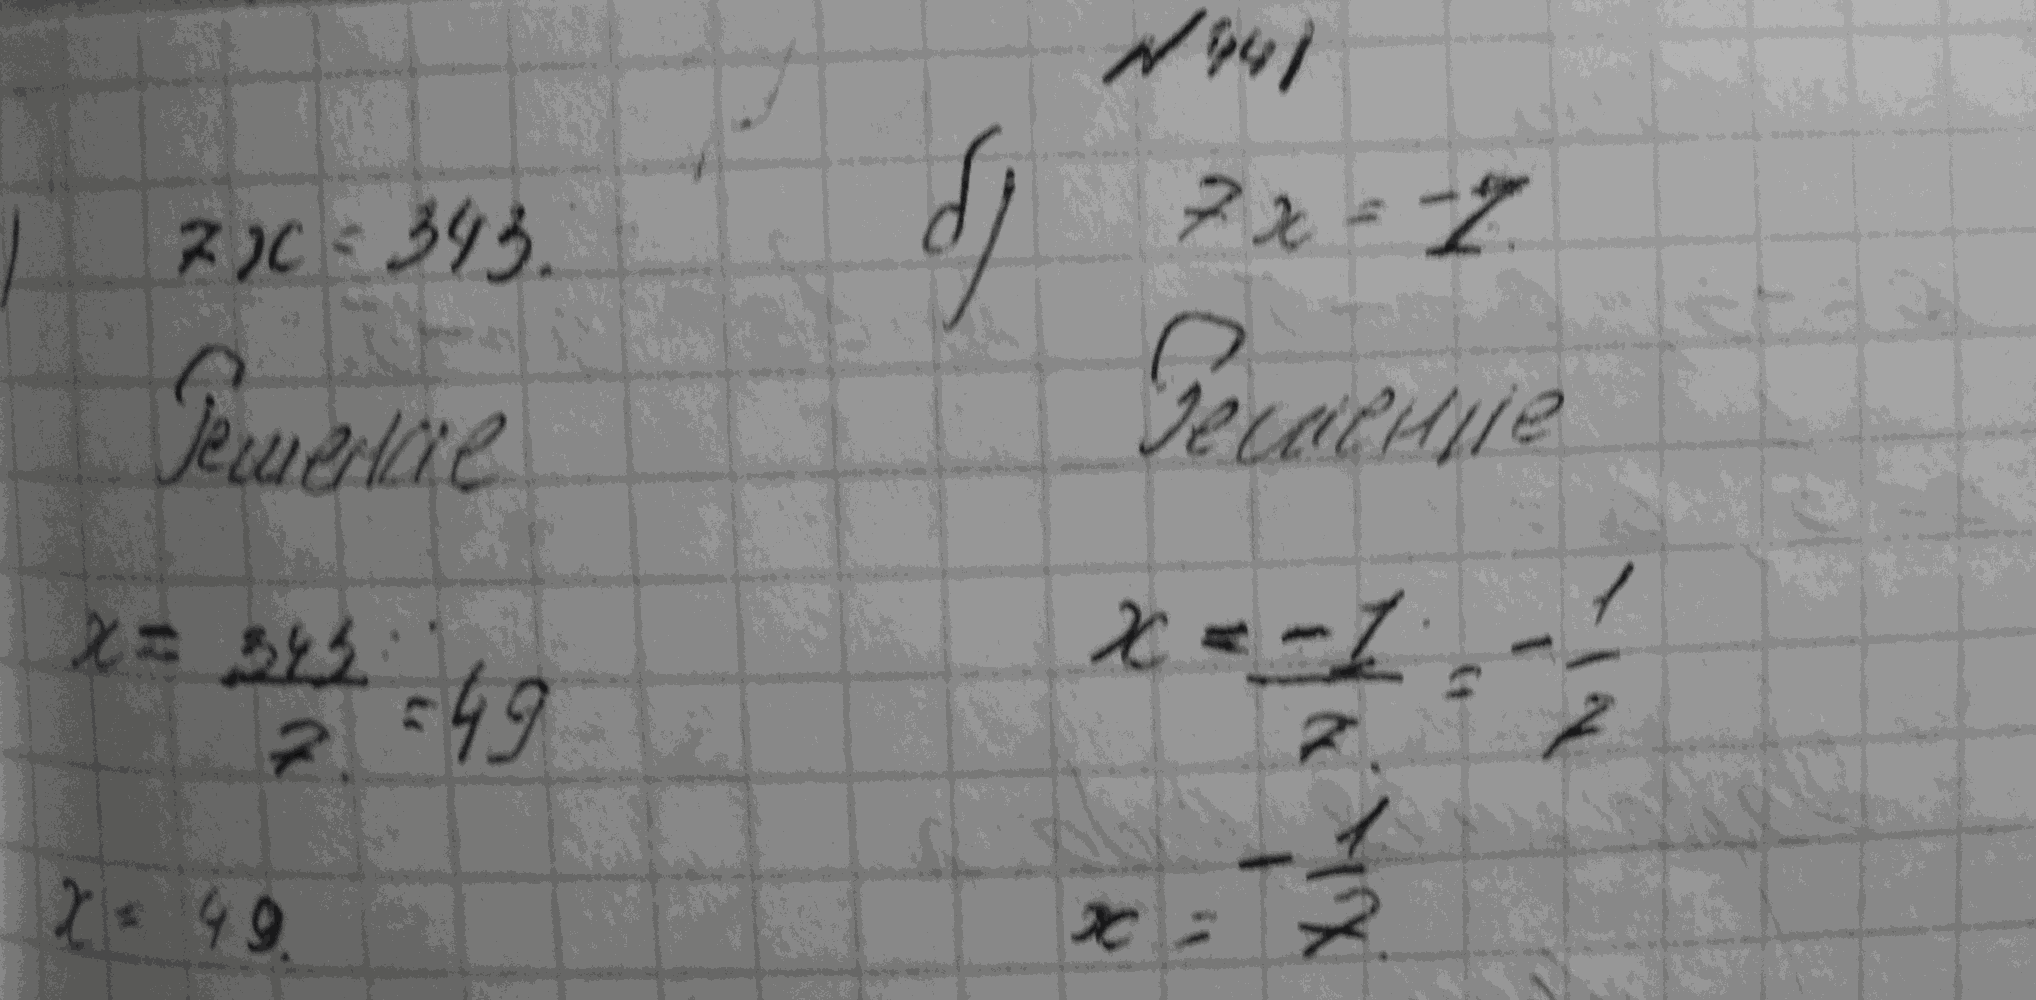 N 441
) 7x = 343.
Решение
x = 343/7 = 49
x = 49.
б) 7x = -1.
Решение
x = -1/7. = -1/7
x = -1/7.